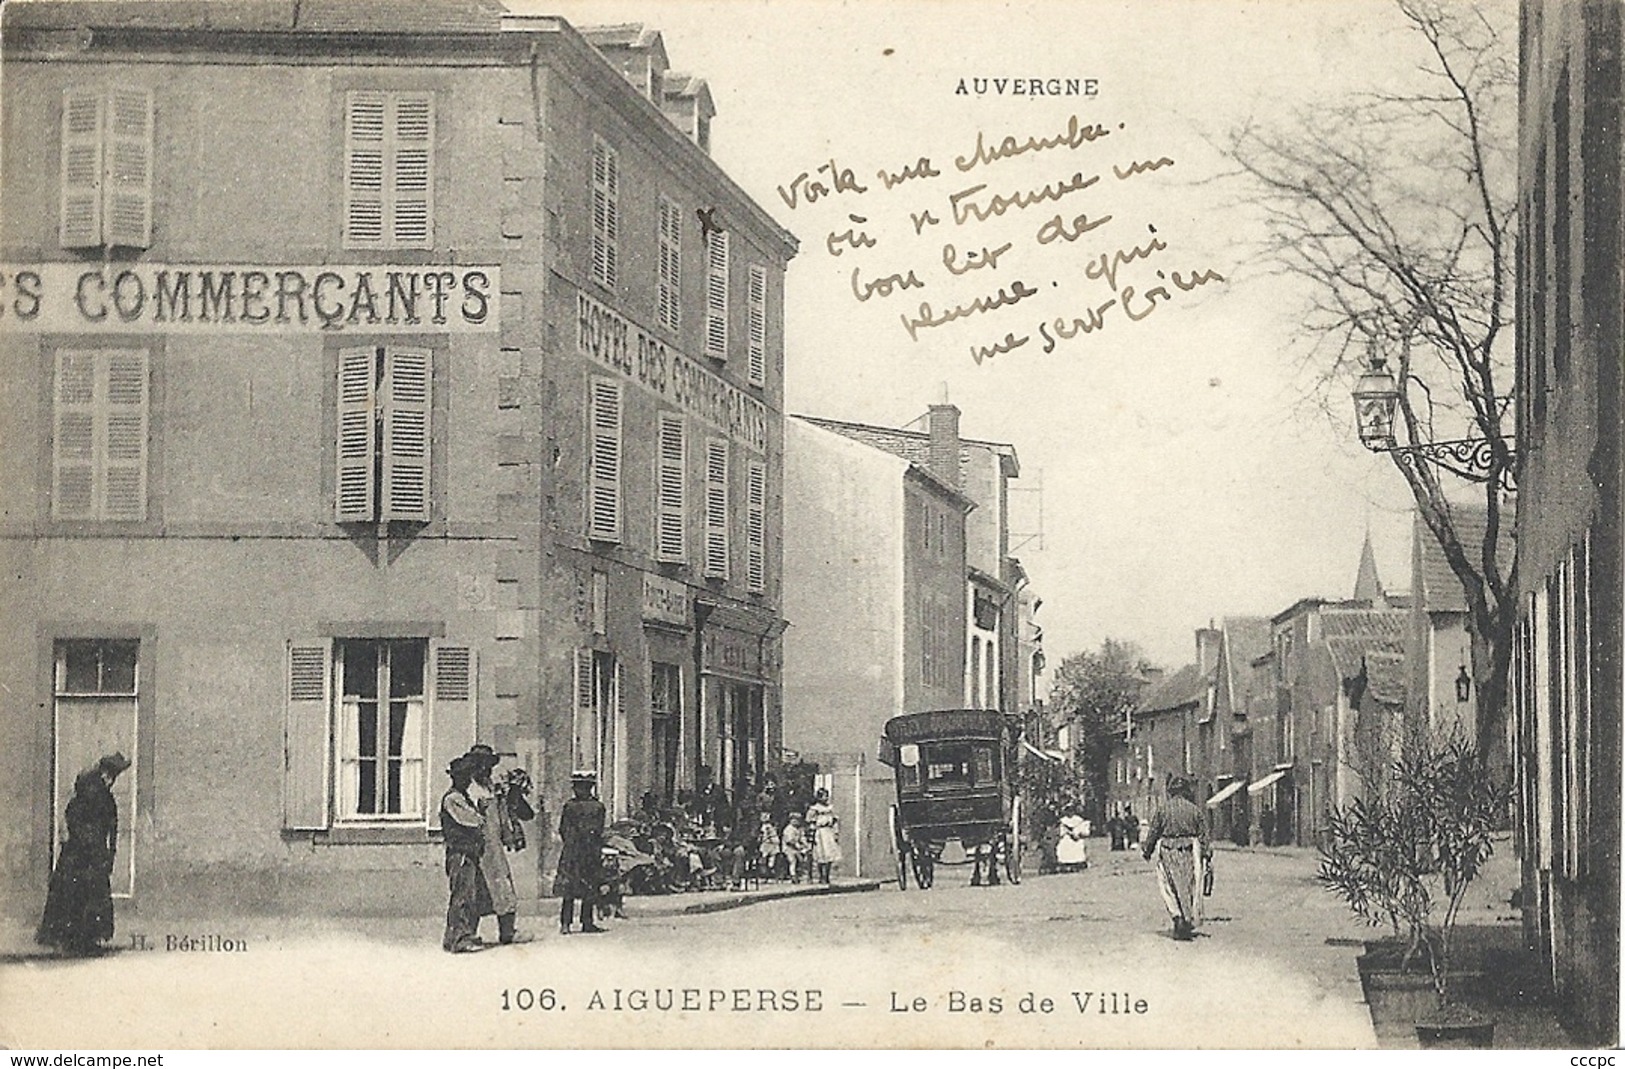 AUVERGNE
voila ma chambre.
où s trouve un
bon lit de
plume. qui
me sert bien
ES COMMERÇANTS
HOTEL DES COMMERÇANTS
H. Bérillon
106. AIGUEPERSE — Le Bas de Ville
www.delcampe.net
cccpc